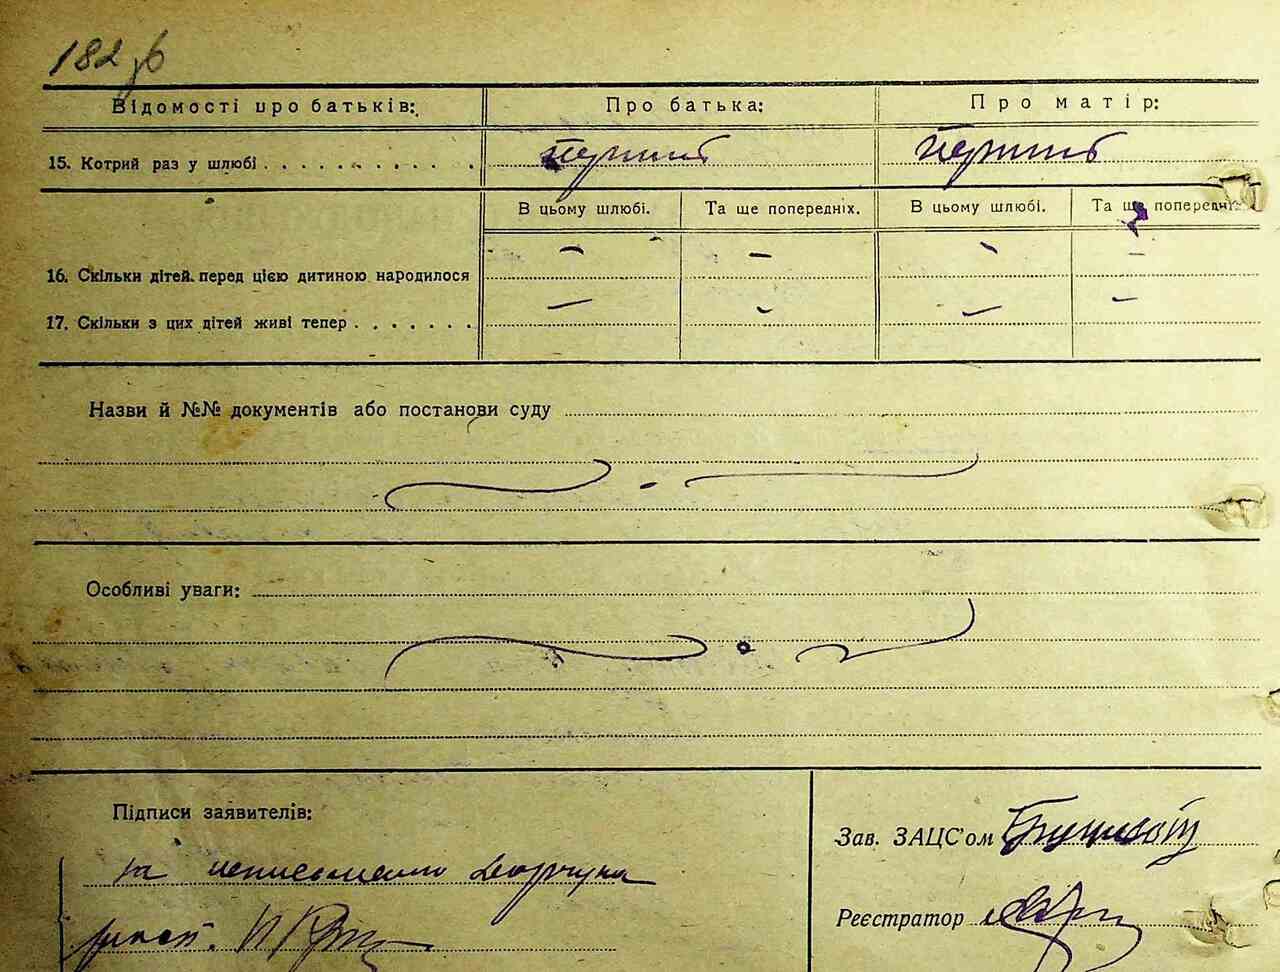 182 зв
Відомості про батьків: Про батька: Про матір:
15. Котрий раз у шлюбі . . . . . . . . . . . перший перший
В цьому шлюбі. Та ще попередніх. В цьому шлюбі. Та ще попередніх.
16. Скільки дітей перед цією дитиною народилося — — — —
17. Скільки з цих дітей живі тепер . . . . . . . — — — —
Назви й №№ документів або постанови суду
Особливі уваги:
Підписи заявителів:
Зав. ЗАЦС'ом
за
Реєстратор